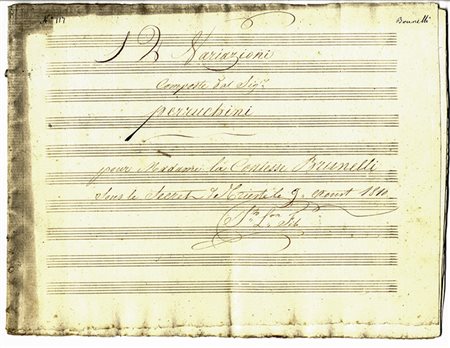 N° 117
Brunelli
12 Variazioni
Composte dal Sig.r
Perruchini
pour Madame la Contesse Brunelli
sous le Secret de Trieste le 9. Aoust 1810